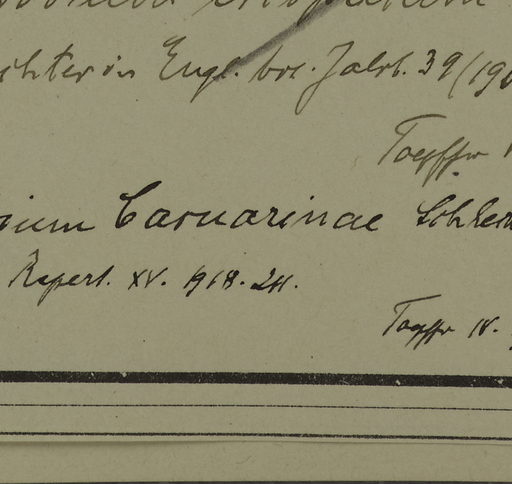 ichter in Engl. bot. Jahrb. 39 (190
Toepffer
ium Casuarinae Schlechter
Repert. XV. 1918. 24.
Toepffer IV.